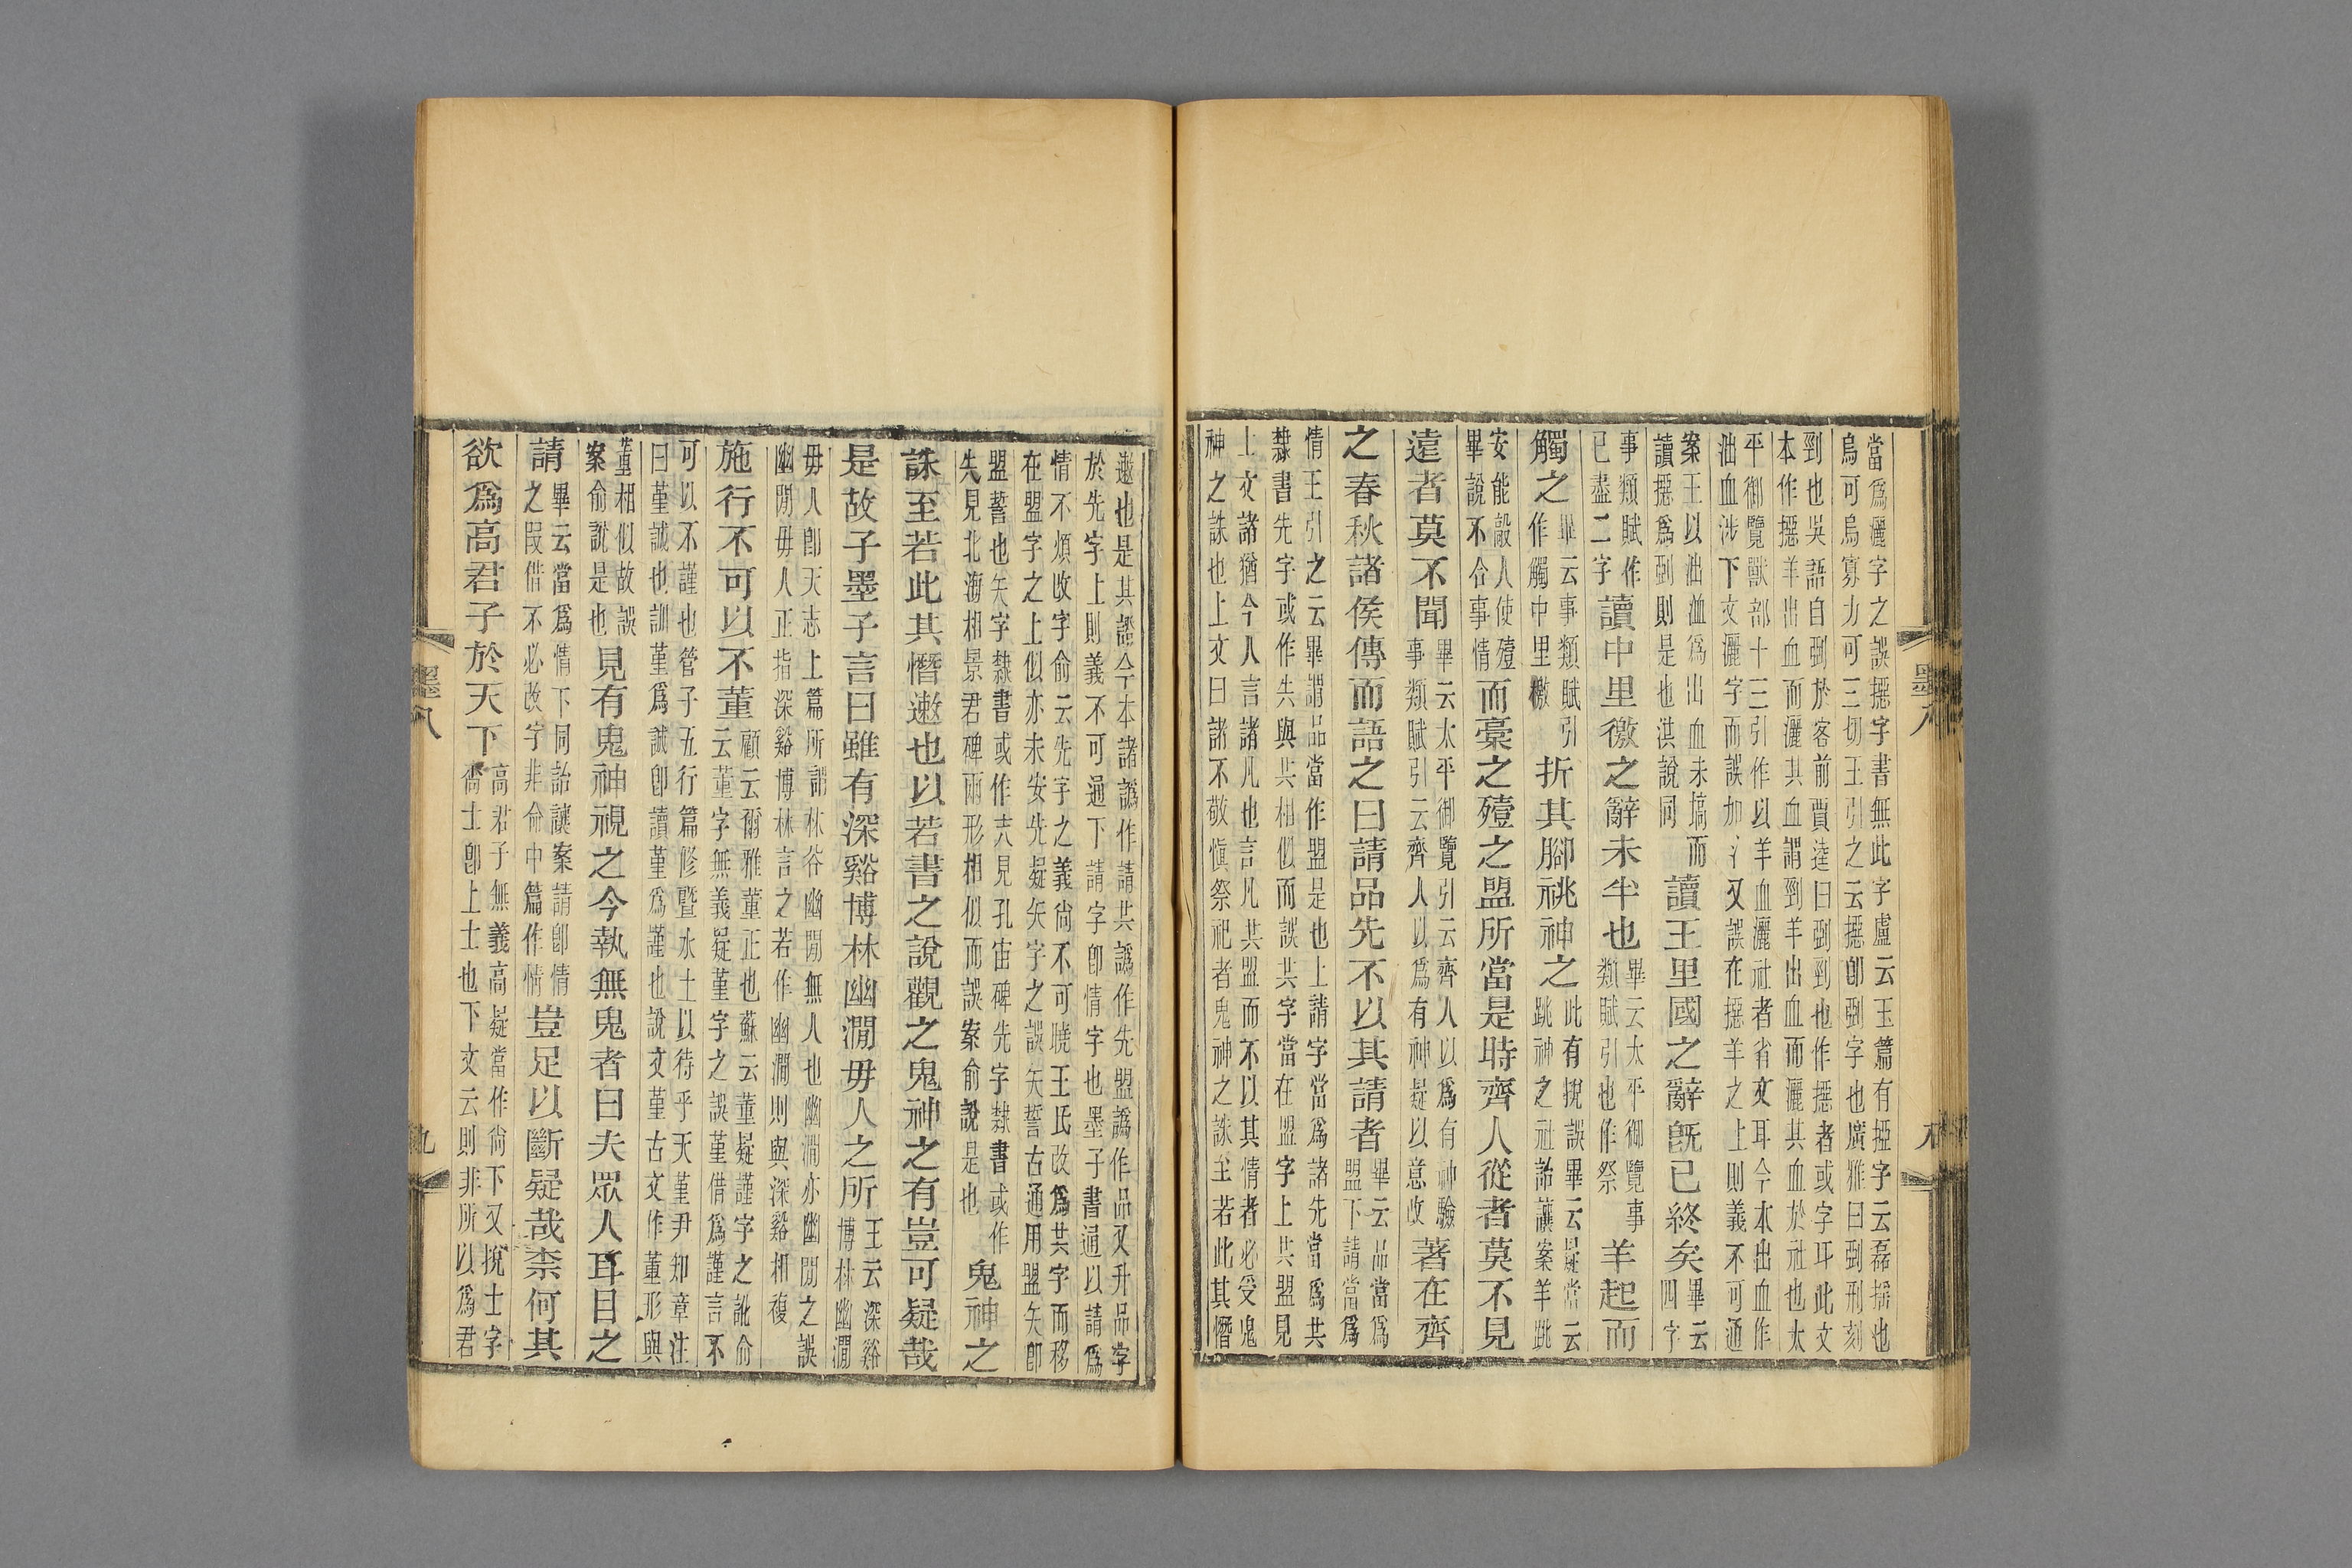 當爲灑字之誤㨡字書無此字盧云玉篇有掗字云磊搖也
烏可烏寡力可三切王引之云㨡卽剄字也廣雅曰剄刑刻
剄也吳語自剄於客前賈逵曰剄剄也作㨡者或字耳此文
本作㨡羊出血而灑其血謂剄羊出血而灑其血於社也太
平御覽獸部十三引作以羊血灑社者省文耳今本出血作
㳑血涉下文灑字而誤加氵又誤在㨡羊之上則義不可通
案王以㳑洫爲出血未塙而
讀㨡爲剄則是也淇說同
讀王里國之辭旣已終矣
畢云四字
事類賦作
已盡二字
讀中里徼之辭未半也
畢云太平御覽事
類賦引也作祭
羊起而
觸之
畢云事類賦引
作觸中里檄
折其腳祧神之
此有挩誤畢云疑當云
跳神之社詒讓案羊跳
安能毃人使殪
畢說不合事情
而槀之殪之盟所當是時齊人從者莫不見
遠者莫不聞
畢云太平御覽引云齊人以爲有神驗
事類賦引云齊人以爲有神疑以意改
著在齊
之春秋諸侯傳而語之曰請品先不以其請者
畢云品當爲
盟下請當爲
情王引之云畢謂品當作盟是也上請字當爲諸先當爲共
隸書先字或作㳄與共相似而誤共字當在盟字上共盟見
上文諸猶今人言諸凡也言凡共盟而不以其情者必受鬼
神之誅也上文曰諸不敬愼祭祀者鬼神之誅至若此其憯
遬也是其證今本諸譌作請共譌作先盟譌作品又升品字
於先字上則義不可通下請字卽情字也墨子書通以請爲
情不煩改字俞云先字之義尙不可曉王氏改爲共字而移
在盟字之上似亦未安先疑矢字之誤矢誓古通用盟矢卽
盟誓也矢字隸書或作𠂕見孔宙碑先字隸書或作
失見北海相景君碑兩形相似而誤案俞說是也
鬼神之
誅至若此其憯遬也以若書之說觀之鬼神之有豈可疑哉
是故子墨子言曰雖有深谿博林幽澗毋人之所
王云深谿
博林幽澗
毋人卽天志上篇所謂林谷幽閒無人也幽澗亦幽閒之誤
幽閒毋人正指深谿博林言之若作幽澗則與深谿相複
施行不可以不董
顧云爾雅董正也蘇云董疑謹字之訛俞
云董字無義疑堇字之誤堇借爲謹言不
可以不謹也管子五行篇修暨水土以待乎天堇尹知章注
曰堇誠也訓堇爲誠卽讀堇爲謹也說文堇古文作𦰶形與
董相似故誤
案俞說是也
見有鬼神視之今執無鬼者曰夫眾人耳目之
請
畢云當爲情下同詒讓案請卽情
之叚借不必改字非命中篇作情
豈足以斷疑哉柰何其
欲爲高君子於天下
高君子無義高疑當作尙下又挩士字
喬士卽上士也下文云則非所以爲君
墨八
八
墨八
九